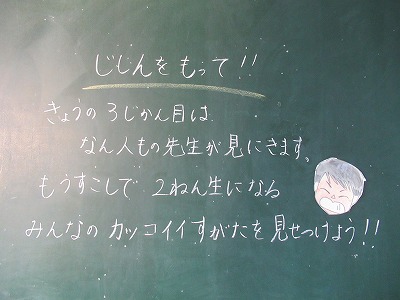 じしんをもって!!
きょうの3じかん目は
なん人もの先生が見にきます。
もうすこしで 2ねん生になる
みんなの カッコイイ すがたを 見せつけよう!!